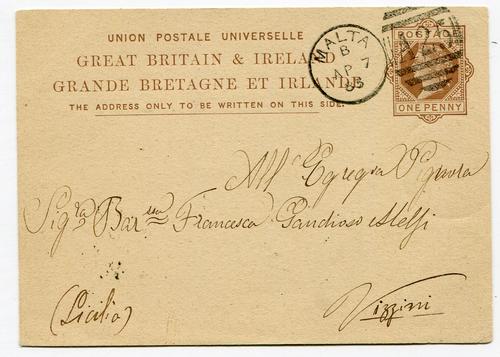 UNION POSTALE UNIVERSELLE
GREAT BRITAIN & IRELAND
GRANDE BRETAGNE ET IRLANDE
THE ADDRESS ONLY TO BE WRITTEN ON THIS SIDE.
MALTA
B
AP 7
83
POSTAGE
ONE PENNY
All' Egregia Signora
Sig.ra Bar.ssa Francesca Gaudioso Melfi
(Sicilia)
Vizzini